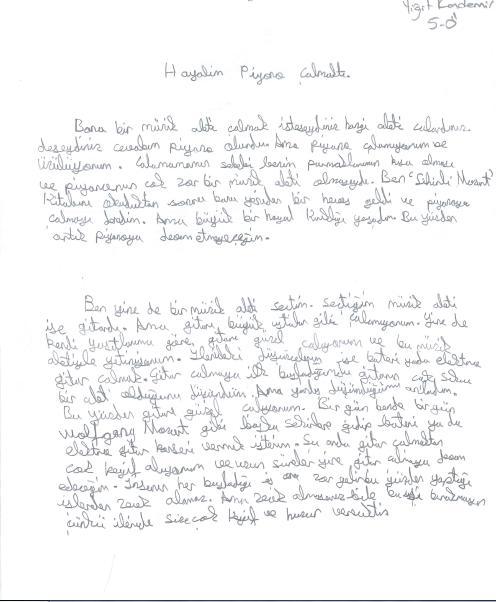 Yiğit Kandemir
5-Ö
Hayalim Piyano Çalmaktı.
Bana bir müzik aleti çalmak isteseydiniz hangi aleti çalardınız
deseydiniz cevabım piyano olurdu. Ama piyano çalamıyorum ve
üzülüyorum. Çalamamamın sebebi benim parmaklarımın kısa olması
ve piyanonun çok zor bir müzik aleti olmasıydı. Ben "Sihirli Mozart"
kitabını okuduktan sonra bana yeniden bir heves geldi ve piyanoya
çalmayı denedim. Ama büyük bir hayal kırıklığı yaşadım. Bu yüzden
artık piyanoya devam etmeyeceğim.
Ben yine de bir müzik aleti seçtim. Seçtiğim müzik aleti
ise gitardı. Ama gitarı büyük ustalar gibi çalamıyorum. Yine de
kendi yaşıtlarıma göre, gitarı güzel çalıyorum ve bu müzik
aletiyle yetiniyorum. İlerideki düşüncelerim ise bateri yada elektro
gitar çalmak. Gitar çalmaya ilk başladığımda gitarın çok sıkıcı
bir alet olduğunu düşündüm. Ama yanlış düşündüğümü anladım.
Bu yüzden gitarı güzel çalıyorum. Bir gün bende bir gün
Wolfgang Mozart gibi başka şehirlere gidip bateri ya da
elektro gitar konseri vermek isterim. Şu anda gitar çalmaktan
çok keyif alıyorum ve uzun süreler yine gitar çalmaya devam
edeceğim. İnsanın her başladığı iş ona zor gelir bu yüzden yaptığı
işlerden zevk alamaz. Ama zevk almasanız bile bu işi bırakmayın
çünkü ileride size çok keyif ve huzur verecektir